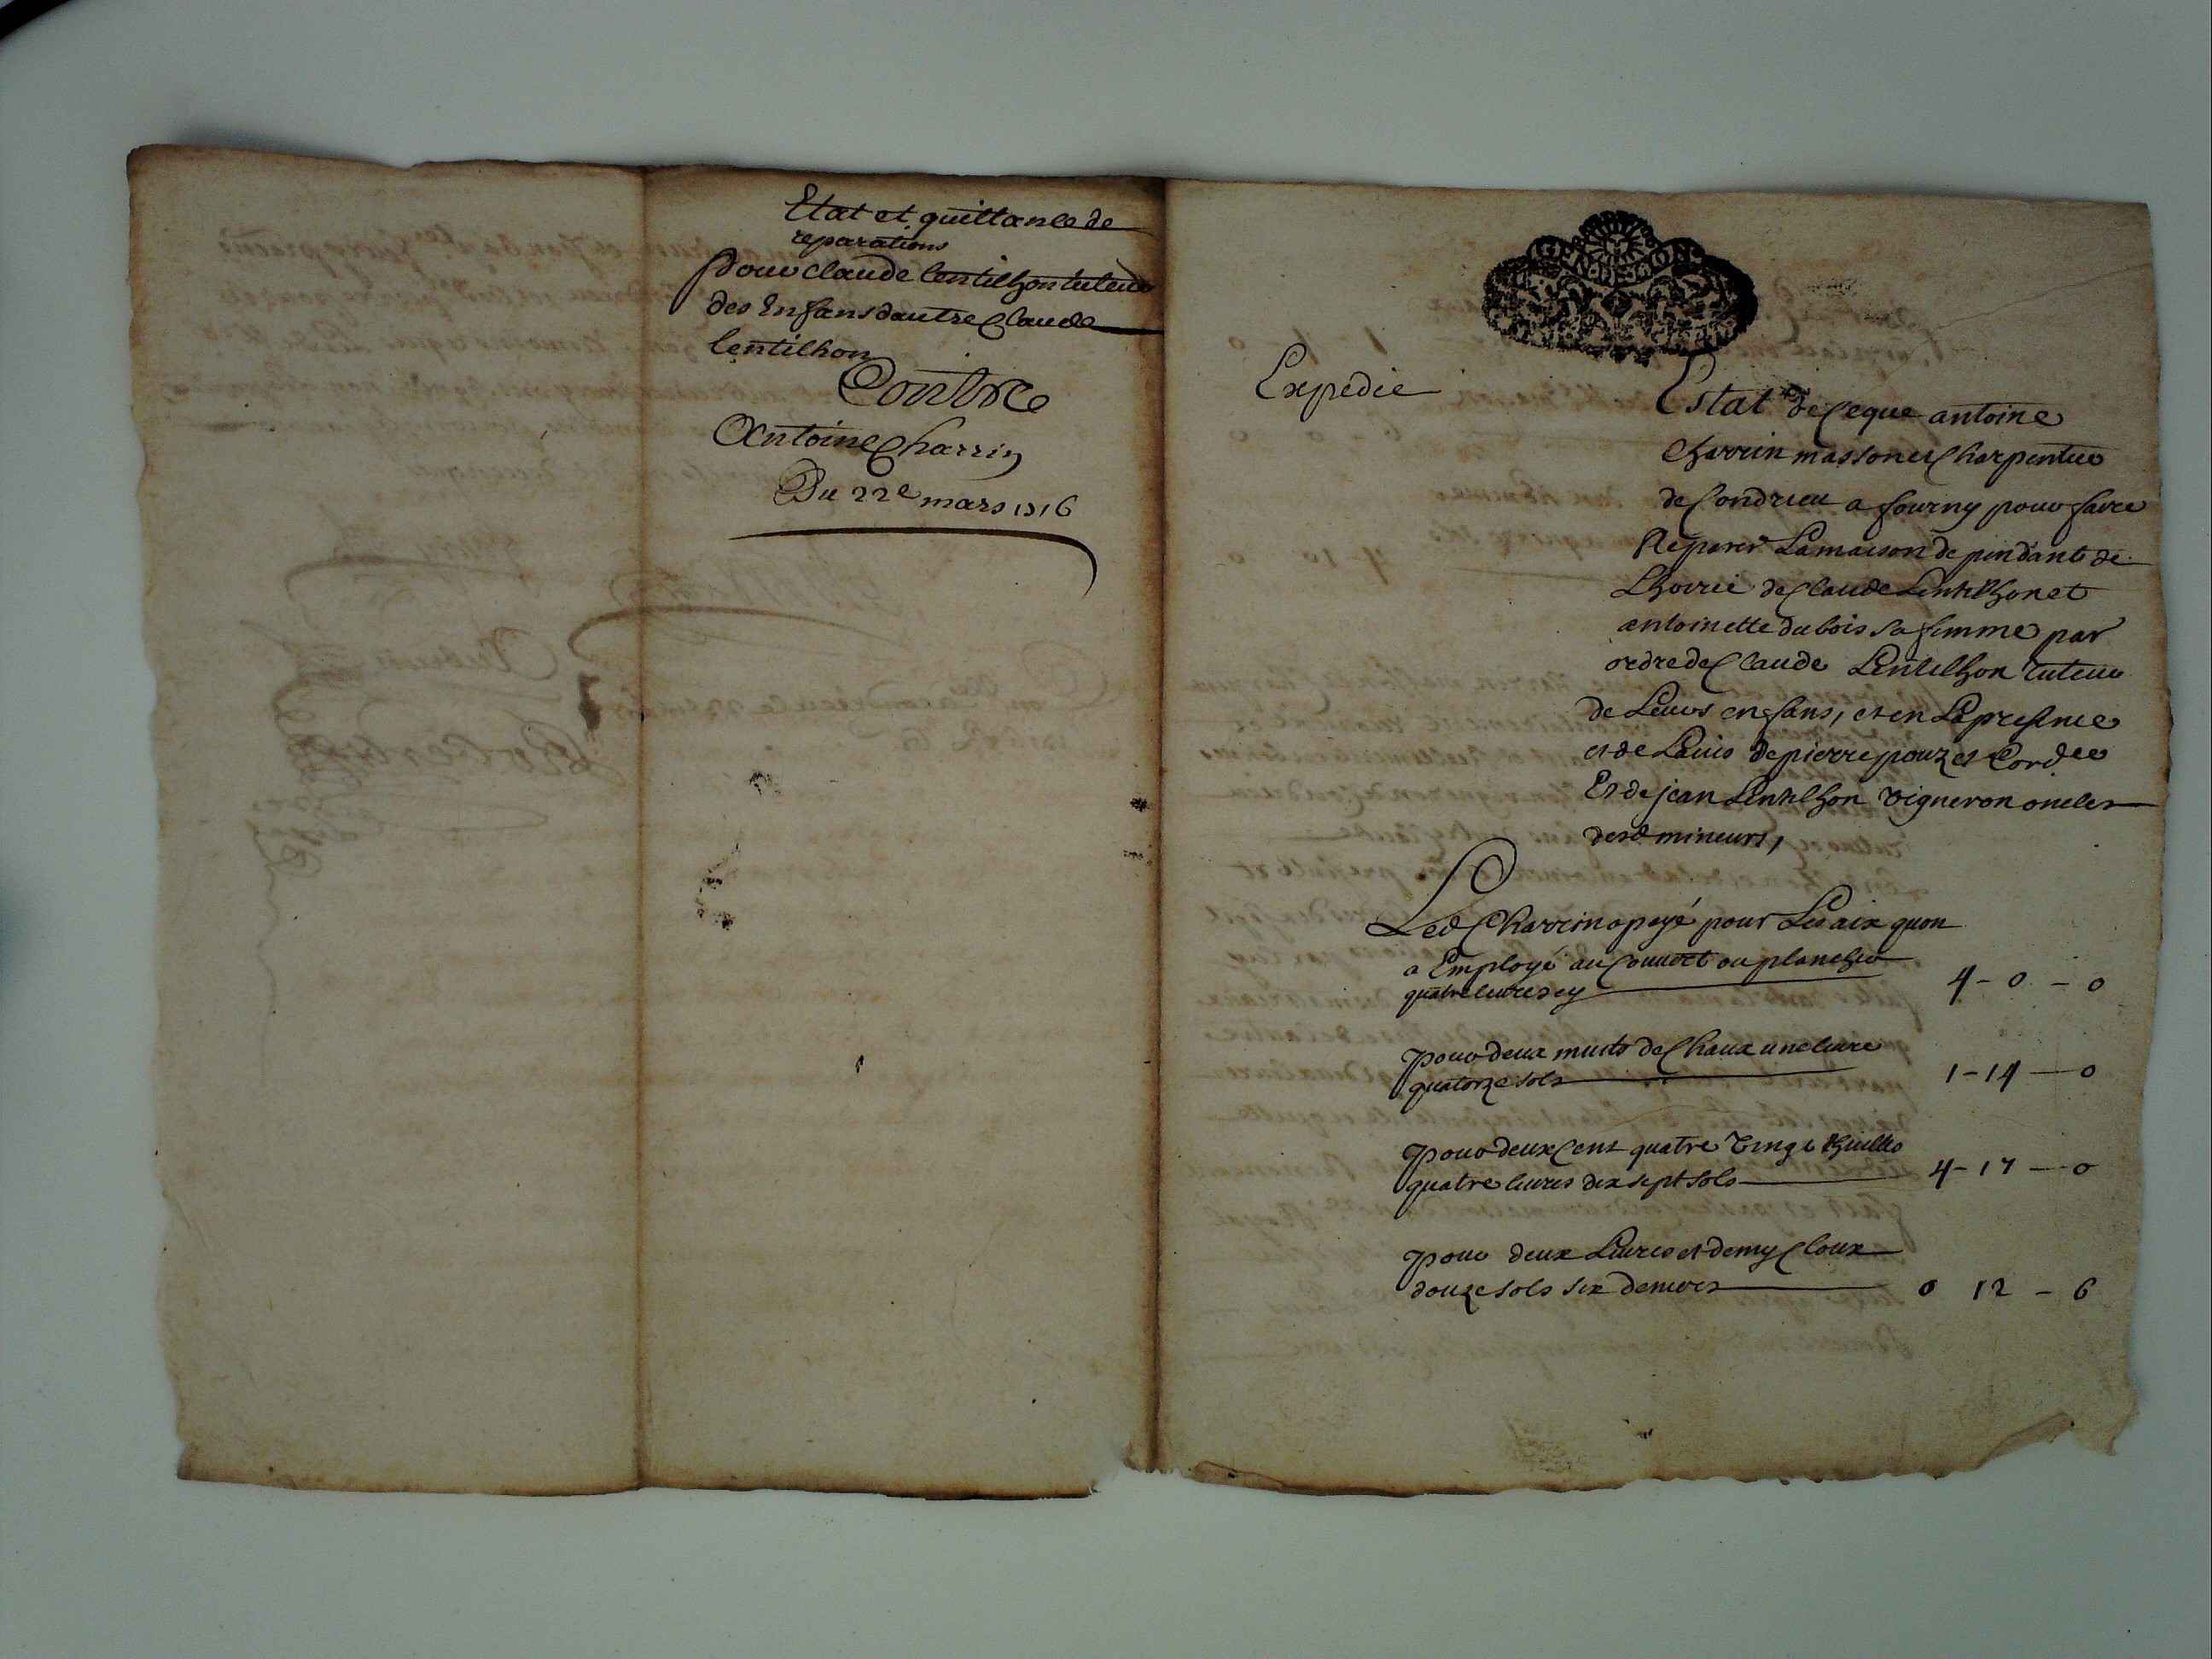 Etat et quittance de
reparations
pour claude lentilhon tuteur
des Enfans dautre Claude
lentilhon
Contre
Antoine Charrin
Du 22e mars 1716
GEN. DE LION
Expedie
Estat de Ceque antoine
Charrin masson et Charpentier
de Condrieu a fourny pour faire
Reparer La maison dependant de
Lhoirie de Claude Lentilhon et
antoinette dubois sa femme par
ordre de Claude Lentilhon tuteur
de Leurs enfans, et en La presence
et de Lavis de pierre pouzet Cord.er
Et de jean Lentilhon vigneron oncles
desd mineurs,
Led Charrin a payé pour Les aix quon
a Employé au Couvert ou plancher
quatre livres cy 4 - 0 - 0
pour deux muits de Chaux une livre
quatorze sols 1 - 14 - 0
pour deux Cent quatre vingt thuilles
quatre livres dix sept sols 4 - 17 - 0
pour deux Livres et demy Cloux
douze sols six deniers 0 12 - 6